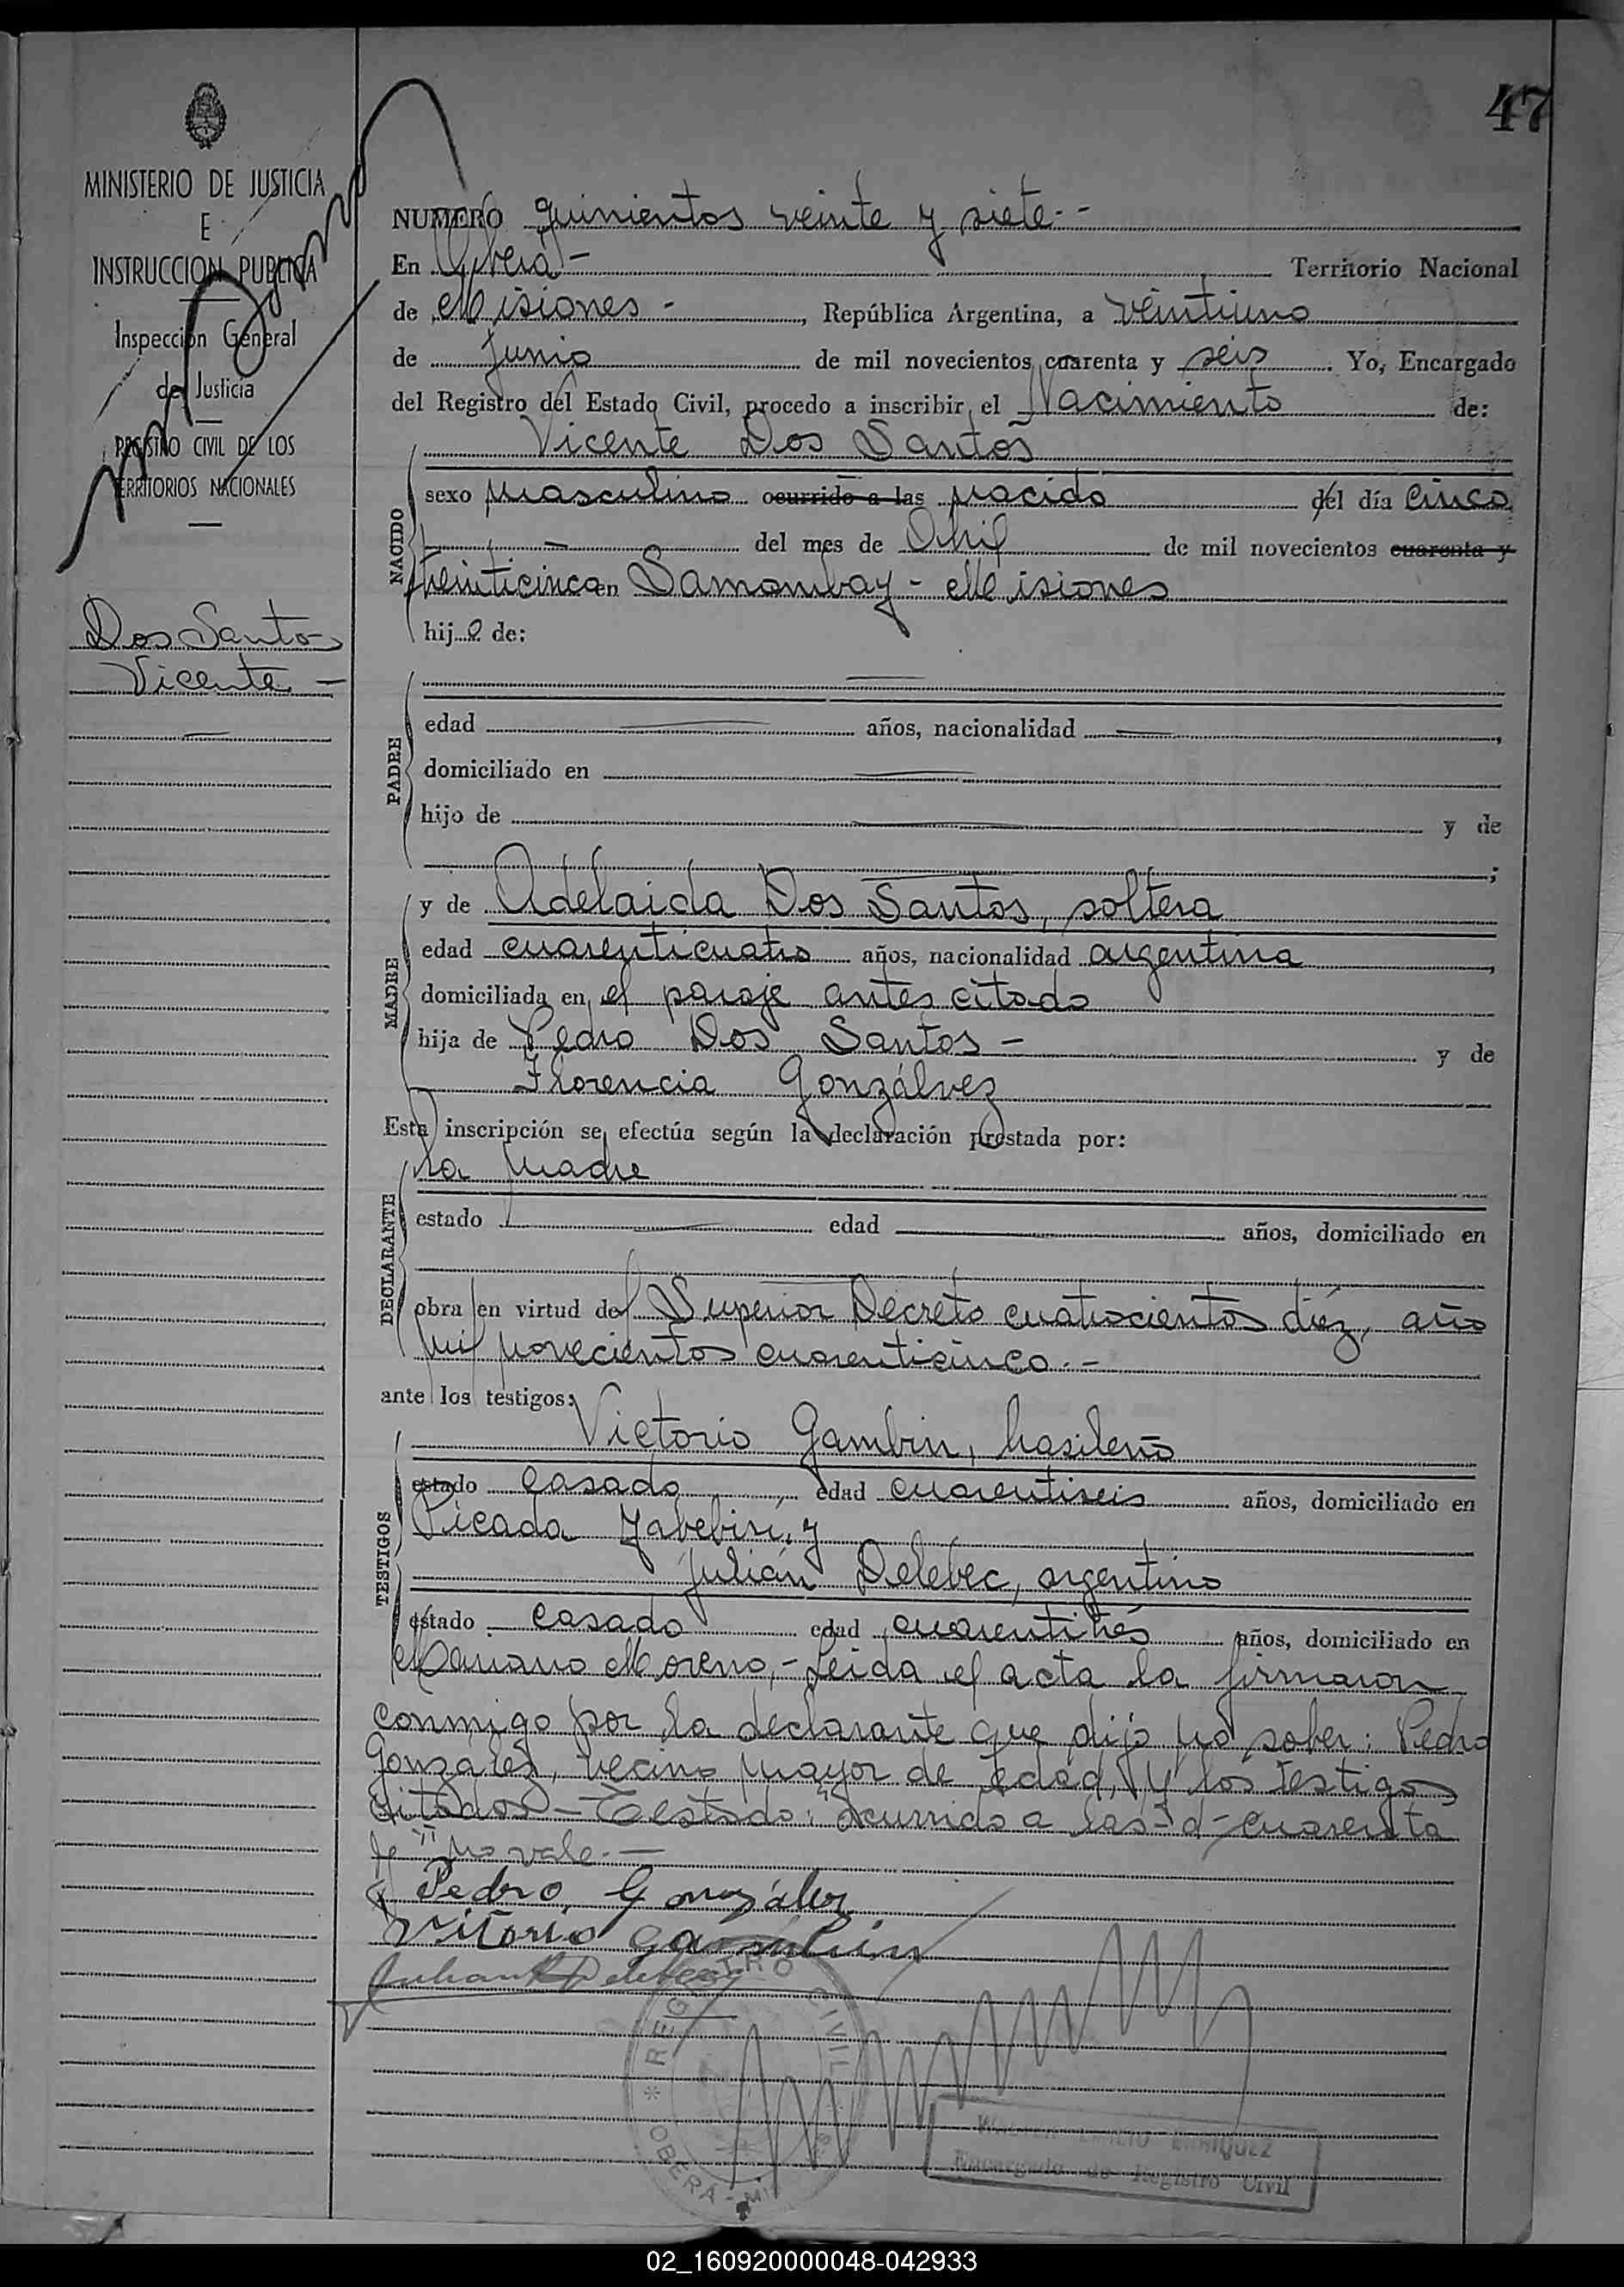 47
MINISTERIO DE JUSTICIA
E
INSTRUCCION PUBLICA
Inspección General
de Justicia
REGISTRO CIVIL DE LOS
TERRITORIOS NACIONALES
Dos Santos
Vicente -
NUMERO quinientos veinte y siete.-
En Oberá - Territorio Nacional
de Misiones - , República Argentina, a veintiuno
de junio de mil novecientos cuarenta y seis . Yo, Encargado
del Registro del Estado Civil, procedo a inscribir el Nacimiento de:
NACIDO
Vicente Dos Santos
sexo masculino ocurrido a las nacido del día cinco
- del mes de Abril de mil novecientos cuarenta y
veinticinco en Samambay - Misiones
hijo de:
PADRE
edad años, nacionalidad ,
domiciliado en
hijo de y de
;
MADRE
y de Adelaida Dos Santos, soltera
edad cuarenticuatro años, nacionalidad argentina ,
domiciliada en el paraje antes citado
hija de Pedro Dos Santos - y de
Florencia Gonzálvez
Esta inscripción se efectúa según la declaración prestada por:
DECLARANTE
la madre
estado edad años, domiciliado en
obra en virtud del Superior Decreto cuatrocientos diéz, año
mil novecientos cuarenticinco.-
ante los testigos:
TESTIGOS
Victorio Gambin, brasileño
estado casado edad cuarentiseis años, domiciliado en
Picada Yabebiri, y
Julián Delebec, argentino
estado casado edad cuarentitrés años, domiciliado en
Mariano Moreno,- Leida el acta la firmaron
conmigo por la declarante que dijo no saber: Pedro
Gonzalez, vecino mayor de edad, y los testigos
citados - Testado: "ocurrido a las - d - cuarenta
y" no vale.-
Pedro González
Vitorio Gambin
REGISTRO CIVIL
* OBERA - Mis
ENRIQUEZ
Encargado de Registro Civil
02_160920000048-042933